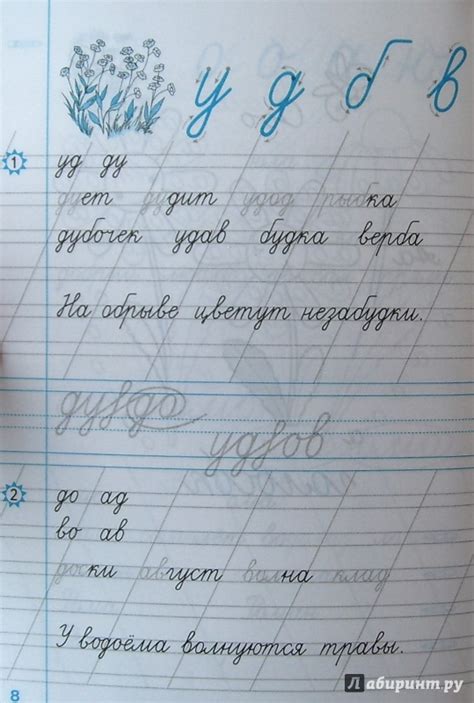 у д б в
1
уд ду
дует дудит удод рыбка
дубочек удав будка верба
На обрыве цветут незабудки.
ду до
уд ов
2
до ад
во ав
доски август волна клад
У водоёма волнуются травы.
8
Лабиринт.ру